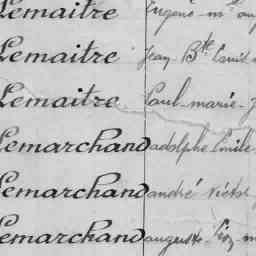 Lemaitre Eugène m
Lemaitre Jean Bte Emile
Lemaitre Paul-marie-J
Lemarchand adolphe Emile
Lemarchand andré Victor
Lemarchand auguste-Léon-m